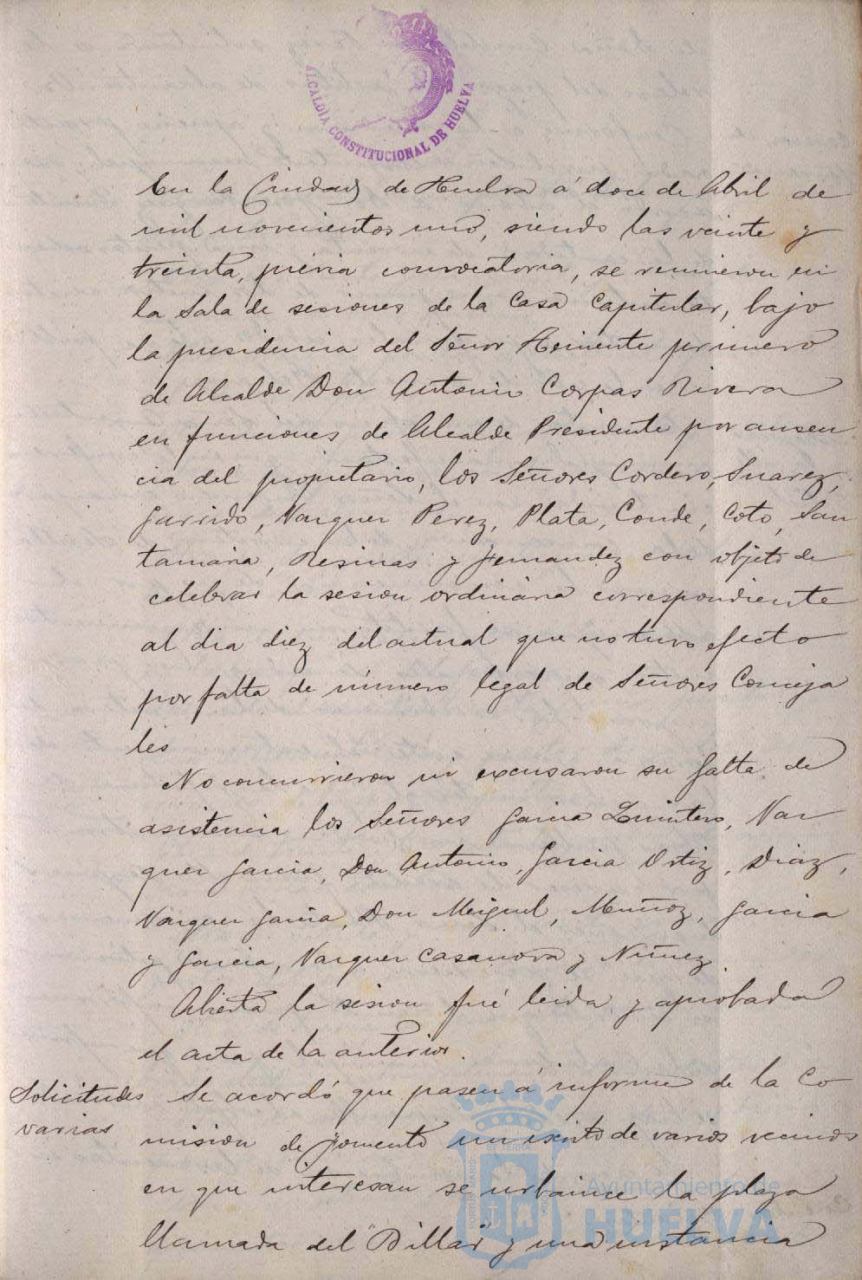 ALCALDÍA CONSTITUCIONAL DE HUELVA
En la Ciudad de Huelva á doce de Abril de
mil novecientos uno, siendo las veinte y
treinta, prévia convocatoria, se reunieron en
la Sala de sesiones de la Casa Capitular, bajo
la presidencia del Señor Teniente primero
de Alcalde Don Antonio Corpas Rivera
en funciones de Alcalde Presidente por ausen
cia del propietario, los Señores Cordero, Suarez,
Garrido, Vazquez Perez, Plata, Conde, Coto, San
tamaria, Resinas y Fernandez con objeto de
celebrar la sesion ordinaria correspondiente
al dia diez del actual que no tuvo efecto
por falta de número legal de Señores Conceja
les
No concurrieron ni excusaron su falta de
asistencia los Señores Garcia Quintero, Vaz
quez Garcia, Don Antonio, Garcia Ortiz, Diaz,
Vazquez Garcia, Don Miguel, Muñoz, Garcia
y Garcia, Vazquez Casanova y Nuñez
Abierta la sesion fué leida y aprobada
el acta de la anterior.
Solicitudes
varias
Se acordó que pasen á informe de la Co
mision de Fomento un escrito de varios vecinos
en que interesan se urbanice la plaza
llamada del "Billar" y una instancia
Ayuntamiento de
HUELVA